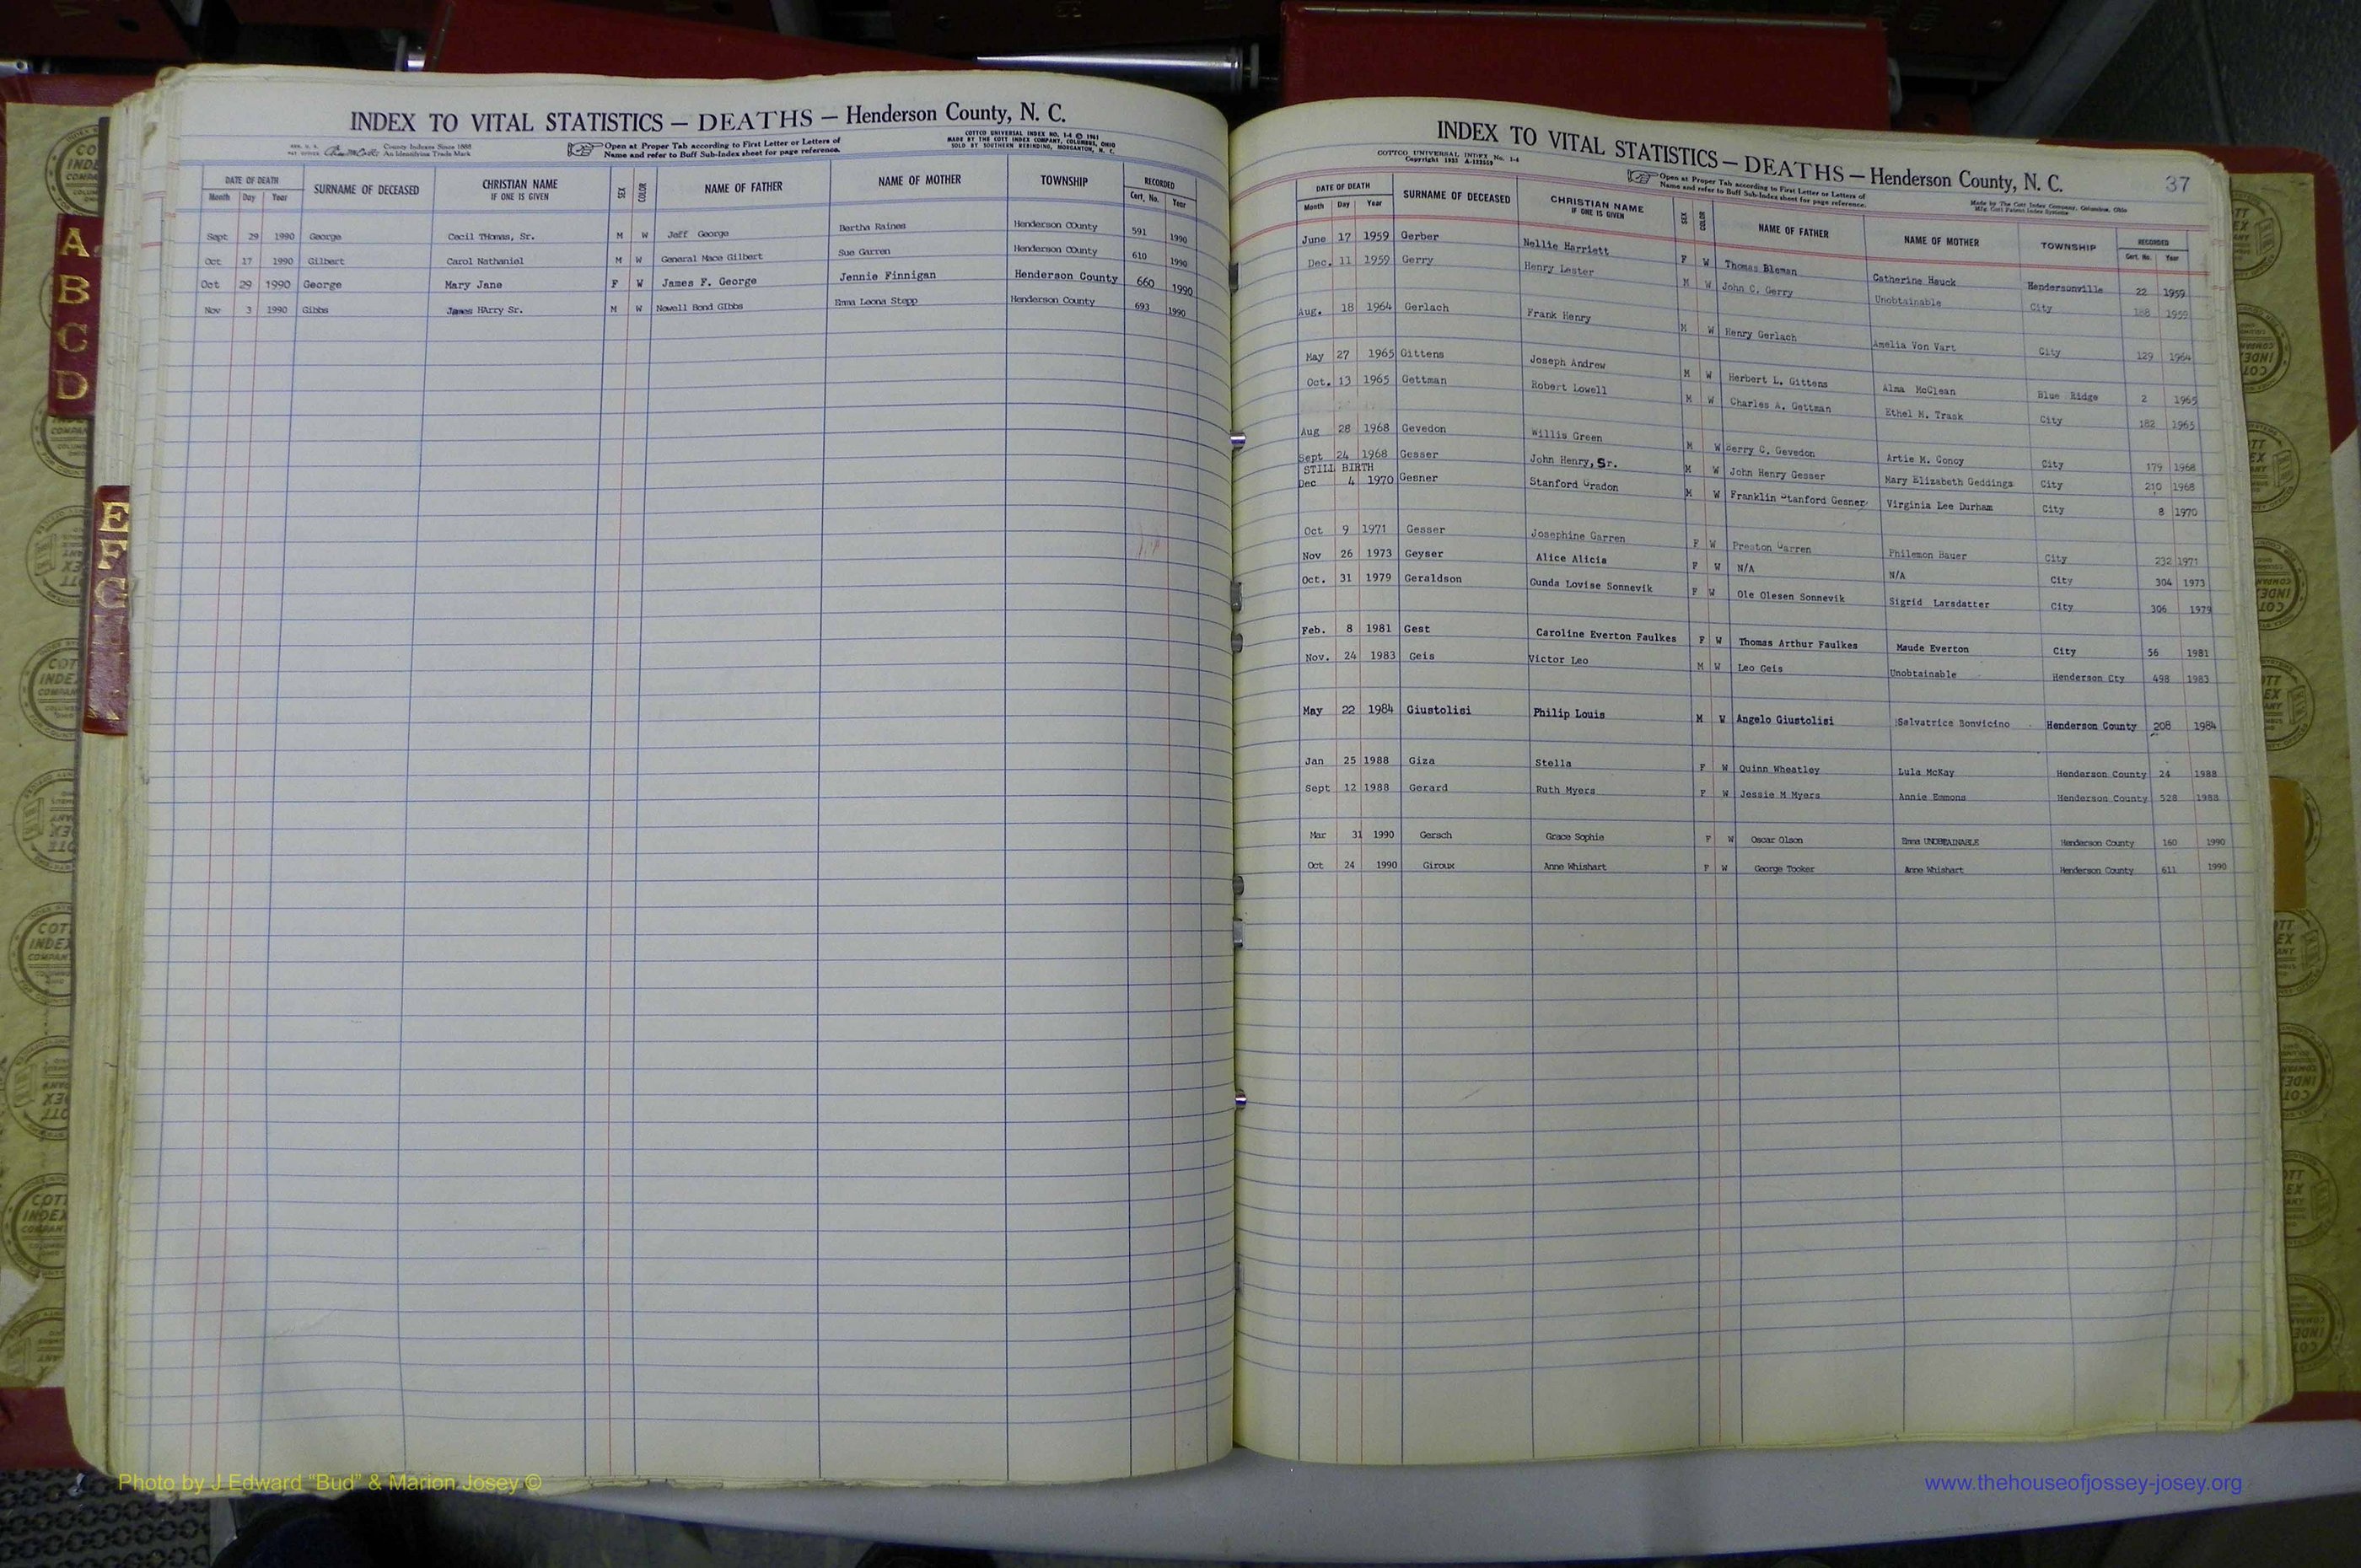 INDEX TO VITAL STATISTICS — DEATHS — Henderson County, N. C.
County Indexes Since 1888
An Identifying Trade Mark
Open at Proper Tab according to First Letter or Letters of
Name and refer to Buff Sub-Index sheet for page reference.
COTTCO UNIVERSAL INDEX NO. 1-4 © 1961
MADE BY THE COTT INDEX COMPANY, COLUMBUS, OHIO
SOLD BY SOUTHERN REBINDING, MORGANTON, N. C.
DATE OF DEATH SURNAME OF DECEASED CHRISTIAN NAME IF ONE IS GIVEN SEX COLOR NAME OF FATHER NAME OF MOTHER TOWNSHIP RECORDED
Month Day Year Cert. No. Year
Sept 29 1990 George Cecil THomas, Sr. M W Jeff George Bertha Raines Henderson COunty 591 1990
Oct 17 1990 Gilbert Carol Nathaniel M W General Mace Gilbert Sue Garren Henderson COunty 610 1990
Oct 29 1990 George Mary Jane F W James F. George Jennie Finnigan Henderson County 660 1990
Nov 3 1990 Gibbs James HArry Sr. M W Nowell Bond GIbbs Emma Leona Stepp Henderson County 693 1990
A
B
C
D
E
F
G
INDEX TO VITAL STATISTICS — DEATHS — Henderson County, N. C.
37
COTTCO UNIVERSAL INDEX No. 1-4
Open at Proper Tab according to First Letter or Letters of
Name and refer to Buff Sub-Index sheet for page reference.
Made by The Cott Index Company, Columbus, Ohio
DATE OF DEATH SURNAME OF DECEASED CHRISTIAN NAME IF ONE IS GIVEN SEX COLOR NAME OF FATHER NAME OF MOTHER TOWNSHIP RECORDED
Month Day Year Cert. No. Year
June 17 1959 Gerber Nellie Harriett F W Thomas Bleman Catherine Hauck Hendersonville 22 1959
Dec. 11 1959 Gerry Henry Lester M W John C. Gerry Unobtainable City 188 1959
Aug. 18 1964 Gerlach Frank Henry M W Henry Gerlach Amelia Von Vart City 129 1964
May 27 1965 Gittens Joseph Andrew M W Herbert L. Gittens Alma McClean Blue Ridge 2 1965
Oct. 13 1965 Gettman Robert Lowell M W Charles A. Gettman Ethel M. Trask City 182 1965
Aug 28 1968 Gevedon Willis Green M W Berry C. Gevedon Artie M. Goncy City 179 1968
Sept 24 1968 Gesser John Henry, Sr. M W John Henry Gesser Mary Elizabeth Geddings City 210 1968
STILL BIRTH
Dec 4 1970 Gesner Stanford Gradon M W Franklin Stanford Gesner Virginia Lee Durham City 8 1970
Oct 9 1971 Gesser Josephine Garren F W Preston Garren Philemon Bauer City 232 1971
Nov 26 1973 Geyser Alice Alicia F W N/A N/A City 304 1973
Oct. 31 1979 Geraldson Gunda Lovise Sonnevik F W Ole Olesen Sonnevik Sigrid Larsdatter City 306 1979
Feb. 8 1981 Gest Caroline Everton Faulkes F W Thomas Arthur Faulkes Maude Everton City 56 1981
Nov. 24 1983 Geis Victor Leo M W Leo Geis Unobtainable Henderson Cty 498 1983
May 22 1984 Giustolisi Philip Louis M W Angelo Giustolisi Salvatrice Bonvicino Henderson County 208 1984
Jan 25 1988 Giza Stella F W Quinn Wheatley Lula McKay Henderson County 24 1988
Sept 12 1988 Gerard Ruth Myers F W Jessie M Myers Annie Emmons Henderson County 528 1988
Mar 31 1990 Gersch Grace Sophie F W Oscar Olson Emma UNOBTAINABLE Henderson County 160 1990
Oct 24 1990 Giroux Anne Whishart F W George Tooker Anne Whishart Henderson County 611 1990
Photo by J Edward "Bud" & Marion Josey ©
www.thehouseofjossey-josey.org